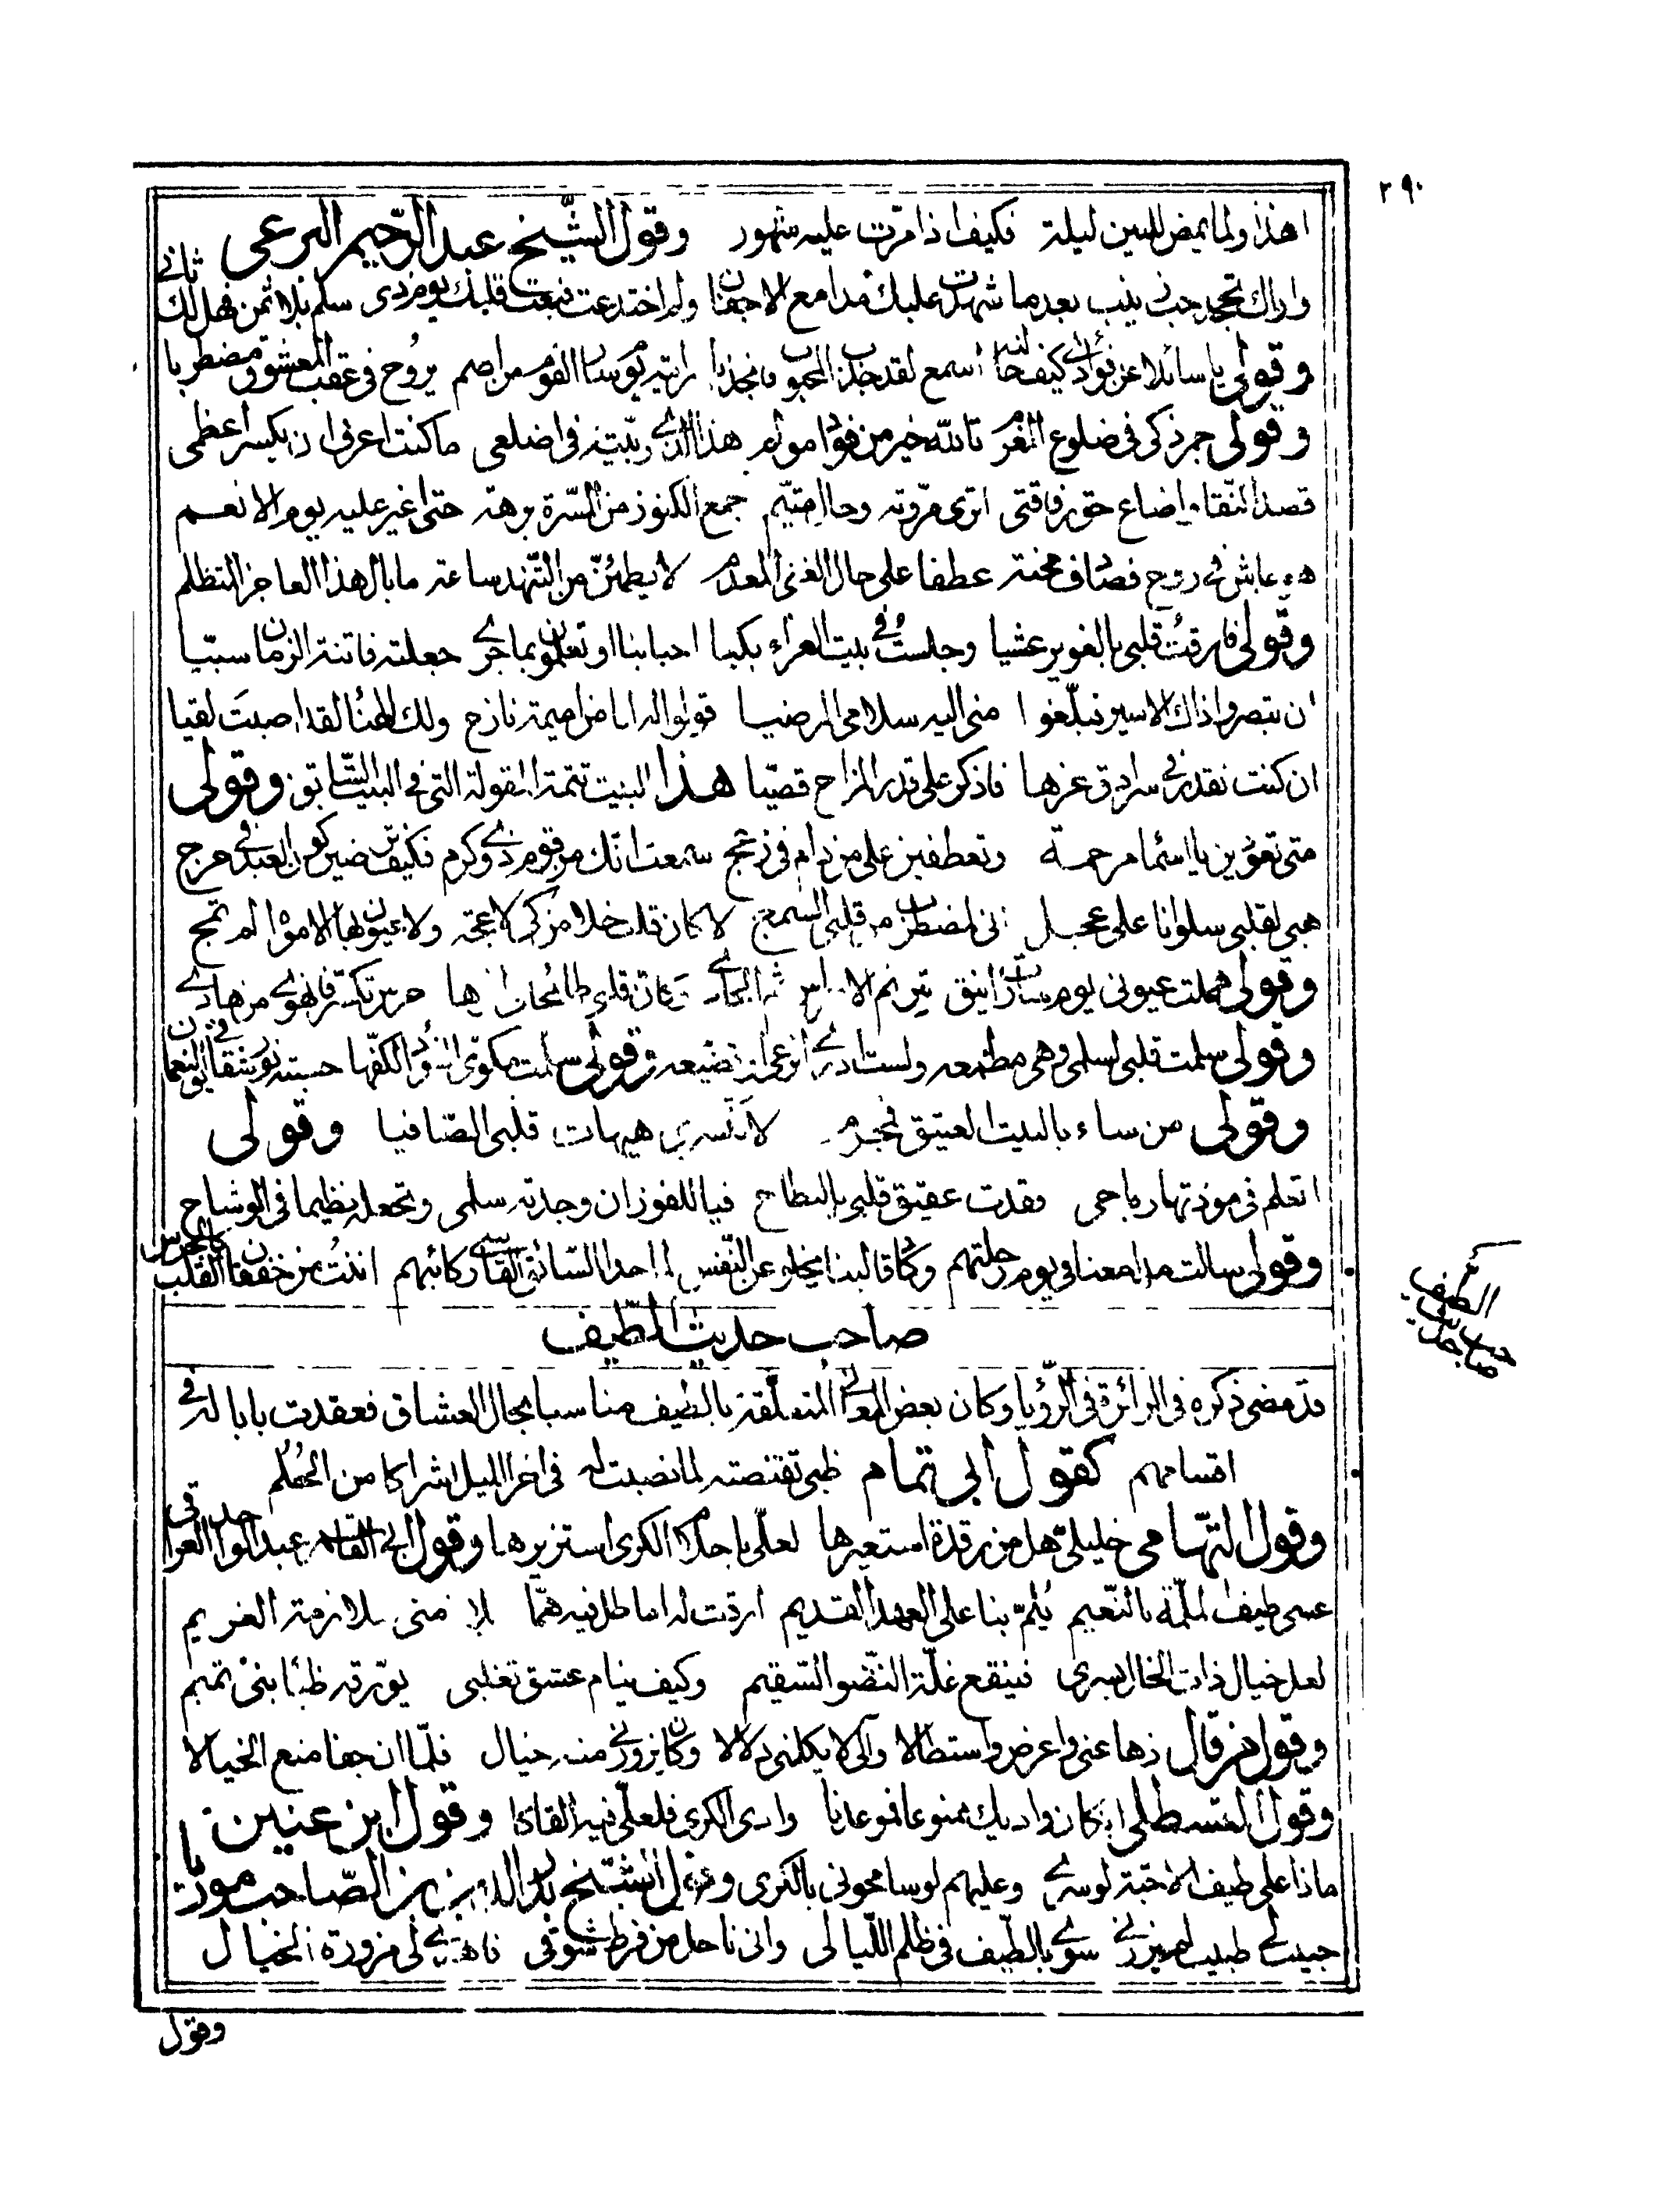 ٢٩٠
اهذا ولما يمض للبين ليلة فكيف اذا مرت عليه شهور وقول الشيخ عبد الرحيم البرعي
واراك تجحد حب زينب بعد ما شهدت عليك مدامع الاجفان ولم اختدعت فبعت قلبك يوم ذي سلم بلا ثمن فهل لك ثاني
وقولي يا سائلا عن فؤادي كيف حالته اسمع لقد جذب المحبوب فانجذبا رايته يوم القوم من اضم يروح في عقب المعشوق مضطربا
وقولي جمر ذكى في ضلوع المغرم تالله خير من فؤاد هذا الذي ربيته في اضلعي ما كنت اعرف ان يكسر اعظمي
قصد النقاء واضاع حق رفاقتي اترى مروته وحال متيم جمع الكنوز من المسرة برهة حتى اغير عليه يوم الانعم
عاش في روح فصاف محنة عطفا على حال الغني المعدم لا يطمئن من التنهد ساعة ما بال هذا العاجز المتظلم
وقولي فارقت قلبي بالغوير عشيا وجلست في بيت العزاء بكيا احبابنا او تعلمون بما جرى جعلته فاتنة الزمان سبيا
ان تبصروا ذاك الاسير فبلغوا مني اليه سلامي المرضيا قولوا له اما من اميمة نازح ولك الهنا لقد اصبت لقيا
ان كنت تقدر في سرادق عزها فاذكر على قدر المزاح قصيا هذا البيت تتمة المقولة التي في البيت السابق وقولي
متى تعودين يا اسما مرحمة وتعطفين على من دام في زعج سمعت انك من قوم ذوي كرم فكيف ترضين كون العبد في حرج
هبي لقلبي سلوانا على عجل اني لمضطرب من قلبي السمج لا كان قلب خلا من كي لاعجه ولا عيون بها الامواه لم تمج
وقولي هملت عيوني يوم سارت اينق بترنم
وقولي سلمت قلبي لسلمى وهي مطمعه ولست ادري وقولي سلمت لكفها حسبته نور شقائق النعمان
وقولي من ساء بالبيت العتيق فمجرم لا تسري هيهات قلبي الصافيا وقولي
اتعلم في مودتها رباحي فقدت عقيق قلبي بالبطاح فيا للفوز ان وجدته سلمى وتجعله نظيما في الوشاح
وقولي سالت مدامعنا في يوم رحلتهم وكاد قالبنا يخلو عن النفس لما حدا السائق القاسي ركائبهم انت من خفقان القلب كالجرس
صاحب حديث الطيف
صاحب حديث الطيف
قد مضى ذكره في الزائرة في الرؤيا وكان بعض المعاني المتعلقة بالطيف مناسبا بحال العشاق فعقدت بابا له في
اقسامهم كقول ابي تمام ظبي تقنصته لما نصبت له في اخر الليل اشراكا من الحلم
وقول التهامي خليلي هل من رقدة استعيرها لعلي باحلام الكرى استزيرها وقول ابي القاسم عبد الواحد العراقي
عسى طيف الملمة بالنعيم يلم بنا على العهد القديم اردت له اماطل فيه هما يلازمني ملازمة الغريم
لعل خيال ذات الخال يسري فينقع غلة النضو السقيم وكيف ينام عشق تغلبي يؤرقه ظبا بني تميم
وقول من قال زها عني واعرض واستطالا والى لا يكلمني دلالا وكان يزورني منه خيال فلما ان جفا منع الخيالا
وقول القسطلي ان كان واديك ممنوعا فموعدنا وادي الكرى فلعلي فيه القاك وقول ابن عنين
ماذا على طيف الاحبة لو سرى وعليهم لو سامحوني بالكرى وقول الشيخ بدر الدين بن الصاحب موريا
حبيب لي طبيب لم يزرني سوى بالطيف في ظلم الليالي واني ناحل من فرط شوقي لي مزورة الخيال
وقول